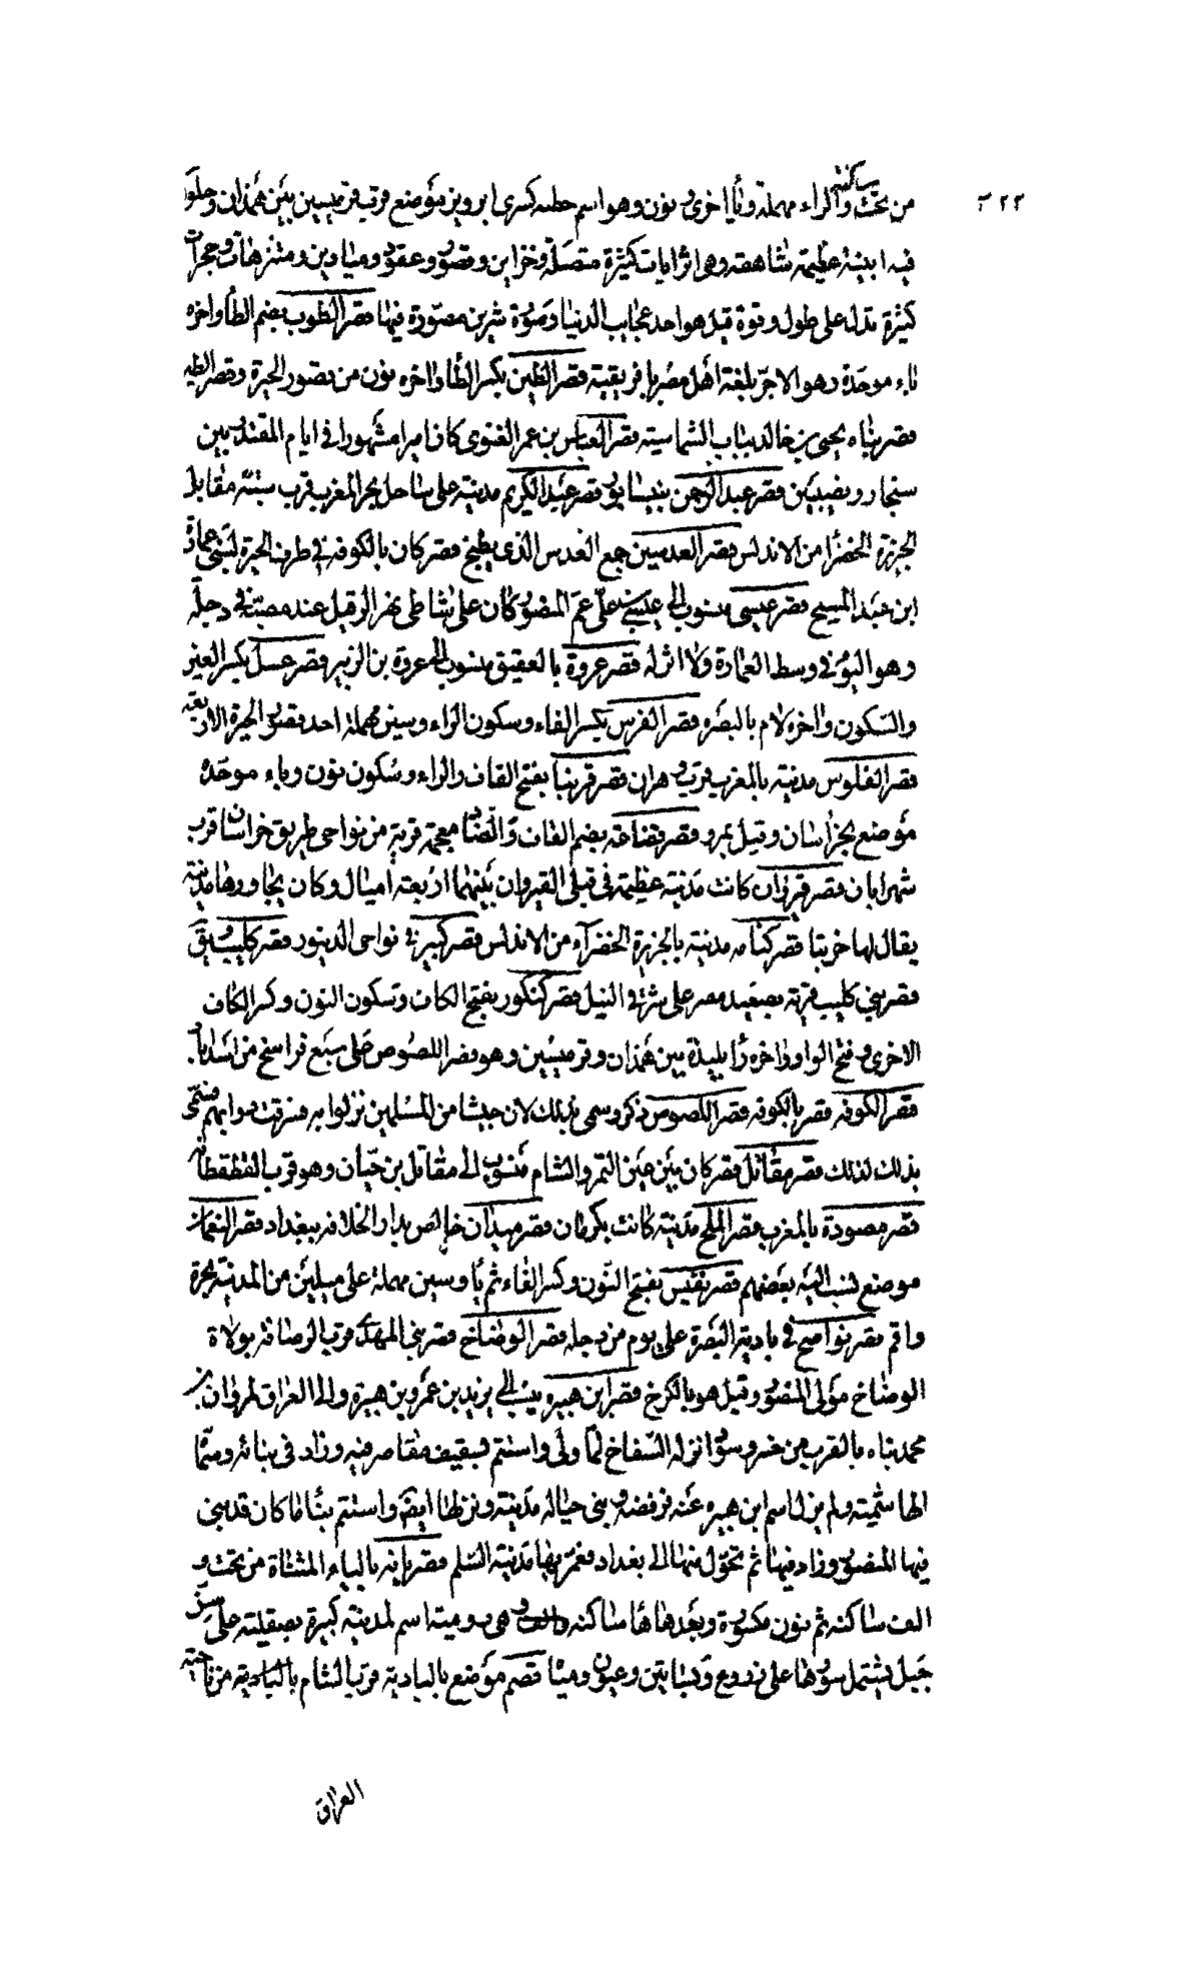 ٣٢٢
من تحت ساكنة والراء مهملة ويا اخرى ونون وهو اسم حظية كسرى ابرويز موضع قرب قرميسين بين همذان وحلو
فيه ابنية عظيمة شاهقة وهى ايوانات كثيرة متصلة وخزاين وقصور وعقود وميادين ومتنزهات وحجرات
كثيرة تدل على طول وقوة قيل هو احد عجايب الدنيا وصورة شيرين مصورة فيها قصر الطوب بضم الطا واخره
باء موحدة وهو الاجر بلغة اهل مصر بافريقية قصر الطين بكسر الطا واخره نون من قصور الحيرة وقصر الطين
قصر بناه يحيى بن خالد بباب الشماسية قصر العباس بن عمر الغنوى كان اميرا مشهورا فى ايام المقتدر بين
سنجار ونصيبين قصر عبد الرحمن بنيسابور قصر عبد الكريم مدينة على ساحل بحر المغرب قرب سبتة مقابل
الجزيرة الخضرا من الاندلس قصر العدسيين جمع العدس الذى يطبخ قصر كان بالكوفة فى طرف الحيرة لبنى عمار
ابن عبد المسيح قصر عيسى منسوب الى عيسى بن على عم المنصور كان على شاطى نهر الرفيل عند مصبه فى دجلة
وهو اليوم فى وسط العمارة ولا اثر له قصر عروة بالعقيق منسوب الى عروة بن الزبير قصر عسل بكسر العين
والسكون واخره لام بالبصره قصر الفرس بكسر الفاء وسكون الراء وسين مهملة احد قصور الحيرة الاربعة
قصر الفلوس مدينة بالمغرب قرب وهران قصر قرنبا بفتح القاف والراء وسكون نون وباء موحده
موضع بخراسان وقيل بمرو قصر قضاعة بضم القاف والضاد معجمة قرية من نواحى طريق خراسان قرب
شهرابان قصر قيروان كانت مدينة عظيمة فى قبلى القيروان بينهما اربعة اميال وكان يجاورها مدينة
يقال لها خربتا قصر كتامه مدينة بالجزيرة الخضرآء من الاندلس قصر كثير فى نواحى الدينور قصر كليب ويق
قصر بني كليب قرية بصعيد مصر على شرقى النيل قصر كنكور بفتح الكاف وسكون النون وكسر الكاف
الاخرى وفتح الواو واخره را بليدة بين همذان وقرميسين وهو قصر اللصوص على سبع فراسخ من اسدابا
قصر الكوفه قصر بالكوفه قصر اللصوص ذكر وسمى بذلك لان جيشا من المسلمين نزلوا به فسرقت دوابهم فسمى
بذلك لذلك قصر مقاتل قصر كان بين عين التمر والشام منسوب الى مقاتل بن حيان وهو قرب القطقطانه
قصر مصمودة بالمغرب قصر الملح مدينة كانت بكرمان قصر ميدان خالص بدار الخلافه ببغداد قصر النعمان
موضع نسب اليه بعضهم قصر نفيس بفتح النون وكسر الفاء ثم يا وسين مهملة على ميلين من المدينة بحرة
واقم قصر نواضح فى بادية البصرة على يوم من دجله قصر الوضاخ قصر بنى المهدى قرب الرصافة تولاه
الوضاخ مولى المنصور وقيل هو بالكرخ قصر ابن هبيره ينسب الى يزيد بن عمرو بن هبيرة والى العراق لمروان بن
محمد بناه بالقرب من جسر سورا نزله السفاح لما ولى واستتم تسقيف مقاصر فيه وزاد فى بنائه وسماه
الهاشمية ولم يزل اسم ابن هبيره عنه فرفضه وبنى حياله مدينة ونزلها ايضا واستتم بناها كان قد بنى
فيها المنصور وزاد فيها ثم تحول منها الى بغداد فعمر بها مدينة السلم قصريانه بالياء المثناة من تحت و
الف ساكنة ثم نون مكسورة وبعدها ها ساكنه هى رومية اسم لمدينة كبيرة بصقلية على سن
جبل يشتمل سورها على زروع وبساتين وعيون ومياه قصم موضع بالبادية قرب الشام بالبادية من ناحية
العراق